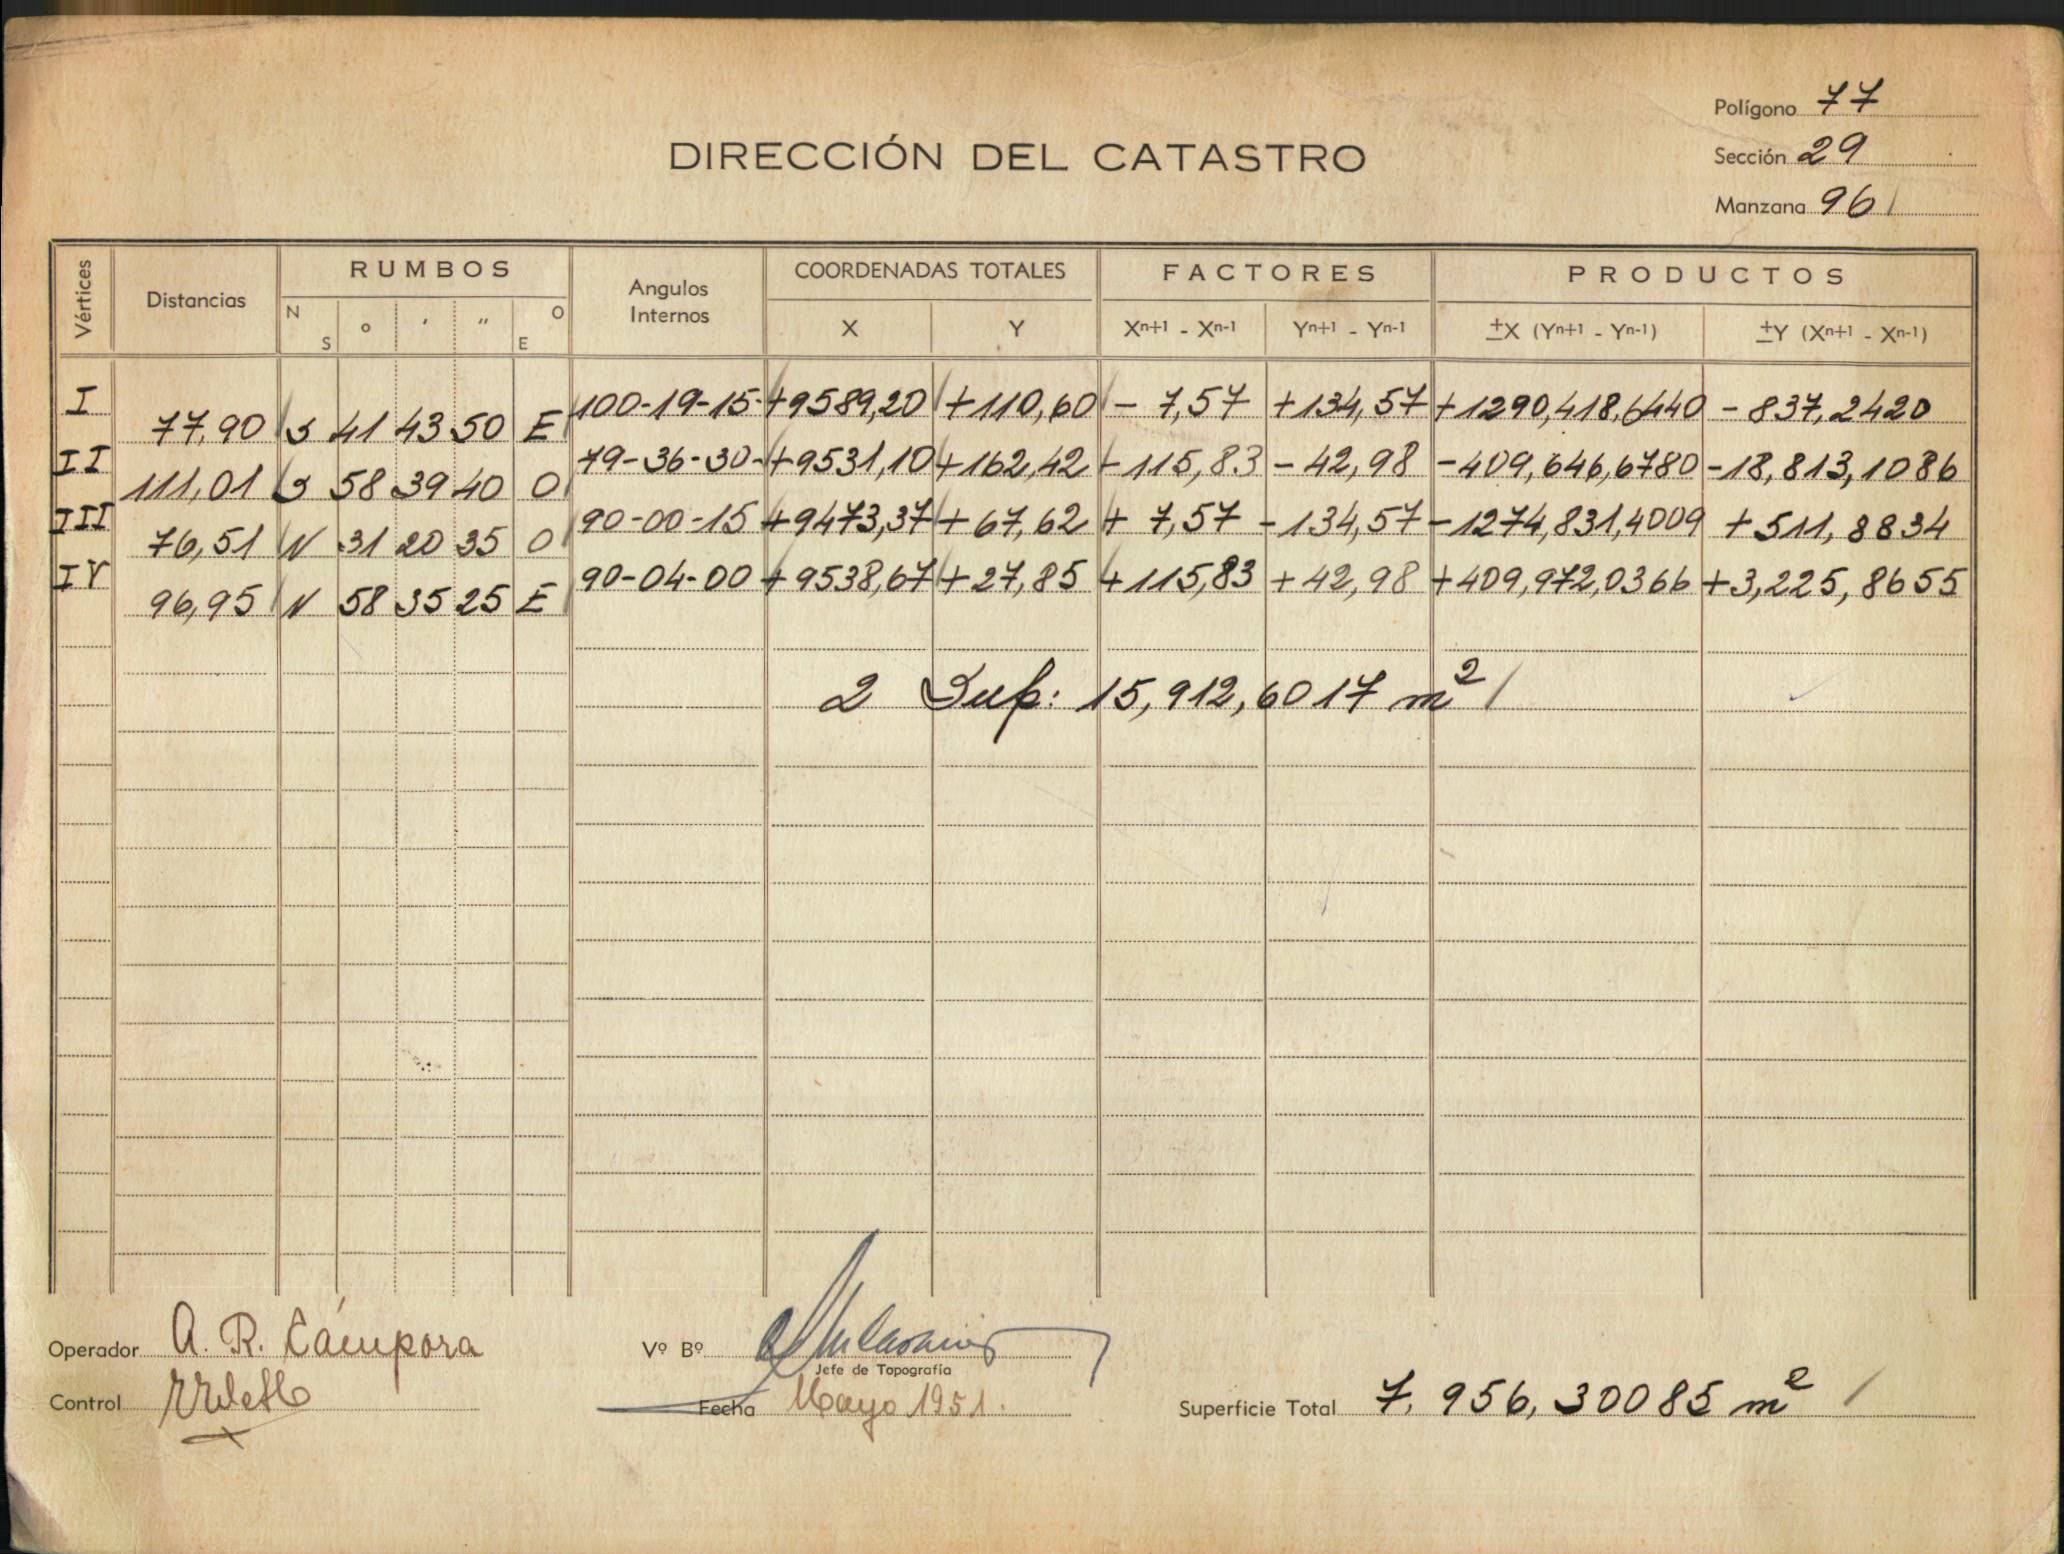 Polígono 77
DIRECCIÓN DEL CATASTRO
Sección 29
Manzana 96
Vértices Distancias RUMBOS Angulos Internos COORDENADAS TOTALES FACTORES PRODUCTOS
N S ° ' " E O X Y Xn+1 - Xn-1 Yn+1 - Yn-1 ±X (Yn+1 - Yn-1) ±Y (Xn+1 - Xn-1)
I 100-19-15 +9589,20 +110,60 - 7,57 +134,57 +1290,418,6440 - 837,2420
77,90 S 41 43 50 E
II 79-36-30 +9531,10 +162,42 -115,83 - 42,98 -409,646,6780 -18,813,1086
111,01 S 58 39 40 O
III 90-00-15 +9473,37 + 67,62 + 7,57 -134,57 -1274,831,4009 + 511,8834
76,51 N 31 20 35 O
IV 90-04-00 +9538,67 + 27,85 +115,83 + 42,98 +409,972,0366 +3,225,8655
96,95 N 58 35 25 E
2 Sup: 15,912,6017 m2
Operador A. R. Cámpora Vº Bº
Jefe de Topografía
Control Fecha Mayo 1951. Superficie Total 7.956,30085 m2